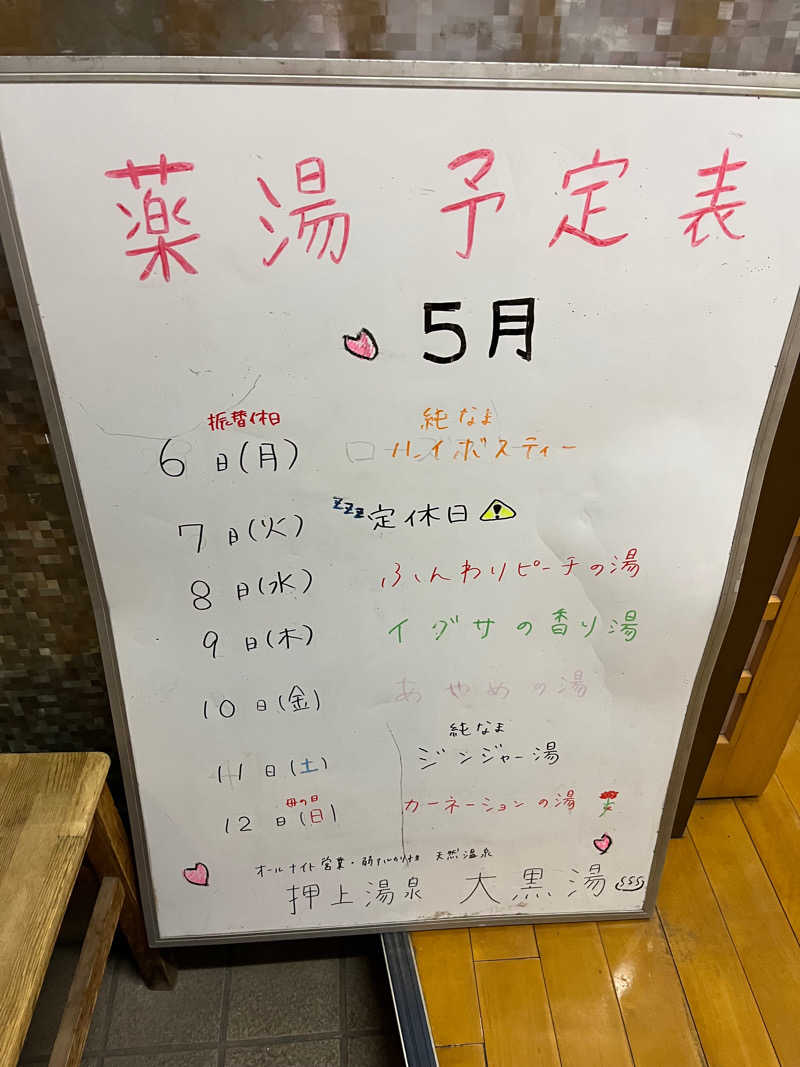 薬湯 予定表
5月
振替休日 純なま
6日(月) ハイボスティー
7日(火) zzz定休日
8日(水) ふんわりピーチの湯
9日(木) イグサの香り湯
10日(金) あやめの湯
純なま
11日(土) ジンジャー湯
母の日
12日(日) カーネーションの湯
オールナイト営業・弱アルカリ性 天然温泉
押上温泉 大黒湯